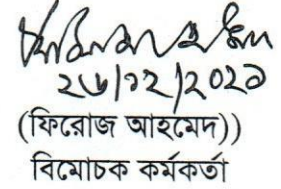 ২৬/১২/২০২১
(ফিরোজ আহমেদ))
বিমোচক কর্মকর্তা